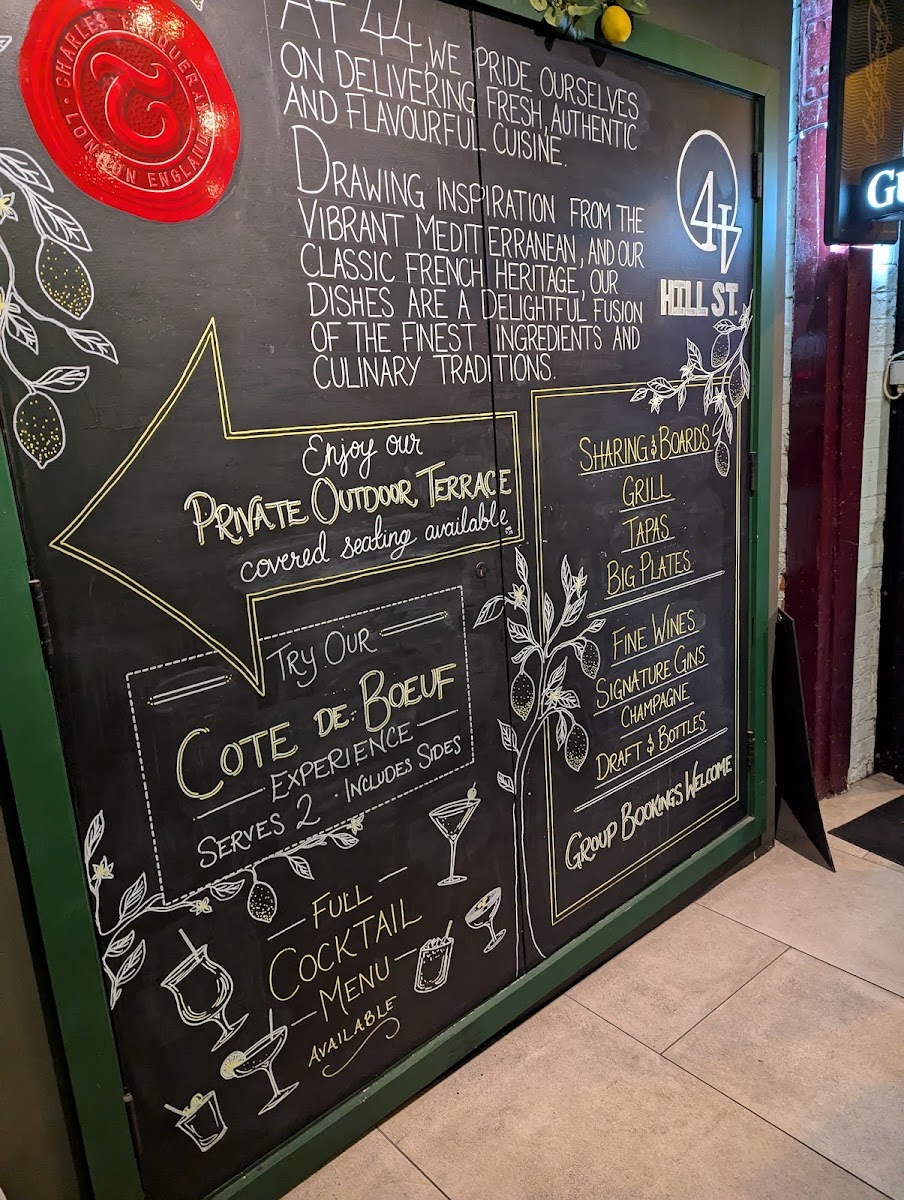 CHARLES TANQUERAY
LONDON ENGLAND
AT 44, WE PRIDE OURSELVES
ON DELIVERING FRESH, AUTHENTIC
AND FLAVOURFUL CUISINE.
DRAWING INSPIRATION FROM THE
VIBRANT MEDITERRANEAN, AND OUR
CLASSIC FRENCH HERITAGE, OUR
DISHES ARE A DELIGHTFUL FUSION
OF THE FINEST INGREDIENTS AND
CULINARY TRADITIONS.
44
HILL ST.
GU
Enjoy our
PRIVATE OUTDOOR TERRACE
covered seating available
TRY OUR
COTE DE BOEUF
EXPERIENCE
SERVES 2 · INCLUDES SIDES
FULL
COCKTAIL
MENU
AVAILABLE
SHARING & BOARDS
GRILL
TAPAS
BIG PLATES
FINE WINES
SIGNATURE GINS
CHAMPAGNE
DRAFT & BOTTLES
GROUP BOOKINGS WELCOME